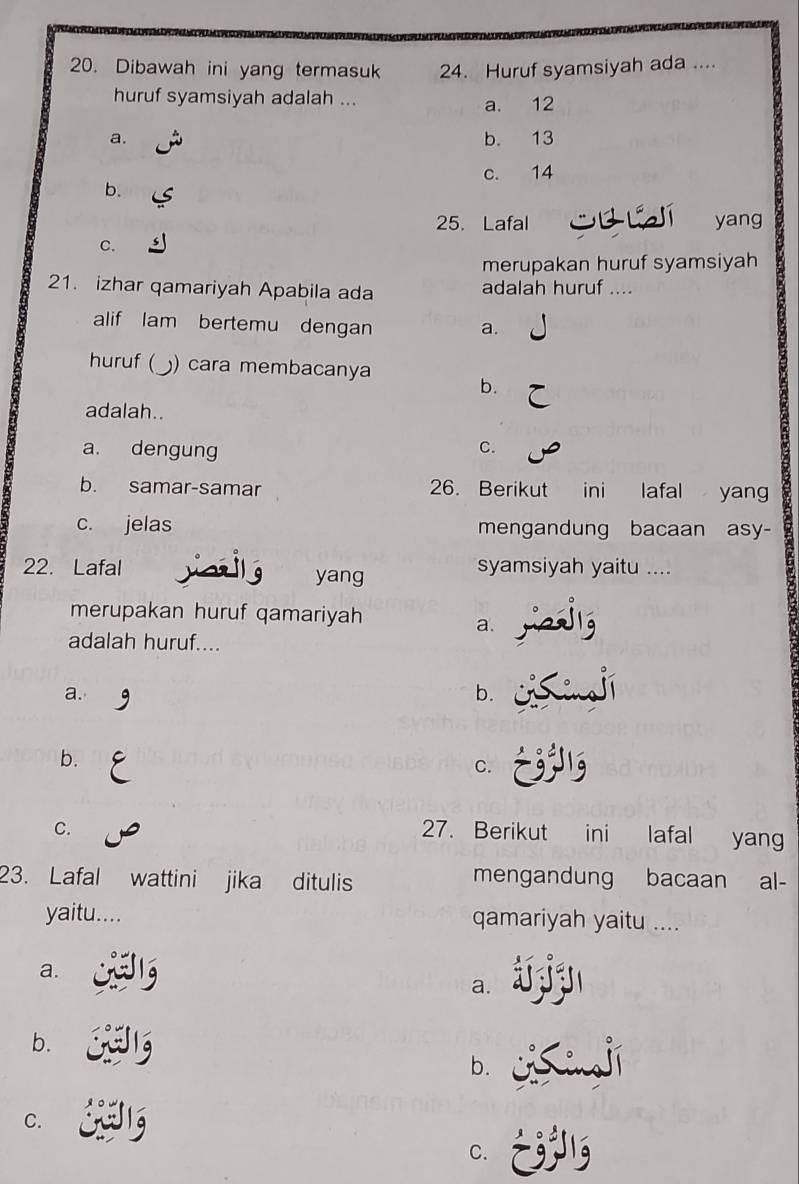 20. Dibawah ini yang termasuk
huruf syamsiyah adalah ...
a. ش
b. ي
c. ك
21. izhar qamariyah Apabila ada
alif lam bertemu dengan
huruf (ر) cara membacanya
adalah..
a. dengung
b. samar-samar
c. jelas
22. Lafal وَالْعَصْرِ yang
merupakan huruf qamariyah
adalah huruf....
a. و
b. ع
c. ص
23. Lafal wattini jika ditulis
yaitu....
a. وَالتِّيْنِ
b. وَالتِّيْنَ
c. وَالتِّيْنُ
24. Huruf syamsiyah ada ....
a. 12
b. 13
c. 14
25. Lafal اَلصَّالِحَاتِ yang
merupakan huruf syamsiyah
adalah huruf ....
a. ل
b. ح
c. ص
26. Berikut ini lafal yang
mengandung bacaan asy-
syamsiyah yaitu ....
a. وَالْعَصْرِ
b. اَلْمِسْكِيْنِ
c. وَالرُّوْحُ
27. Berikut ini lafal yang
mengandung bacaan al-
qamariyah yaitu ....
a. الزَّلْزَلَةُ
b. اَلْمِسْكِيْنِ
c. وَالرُّوْحُ